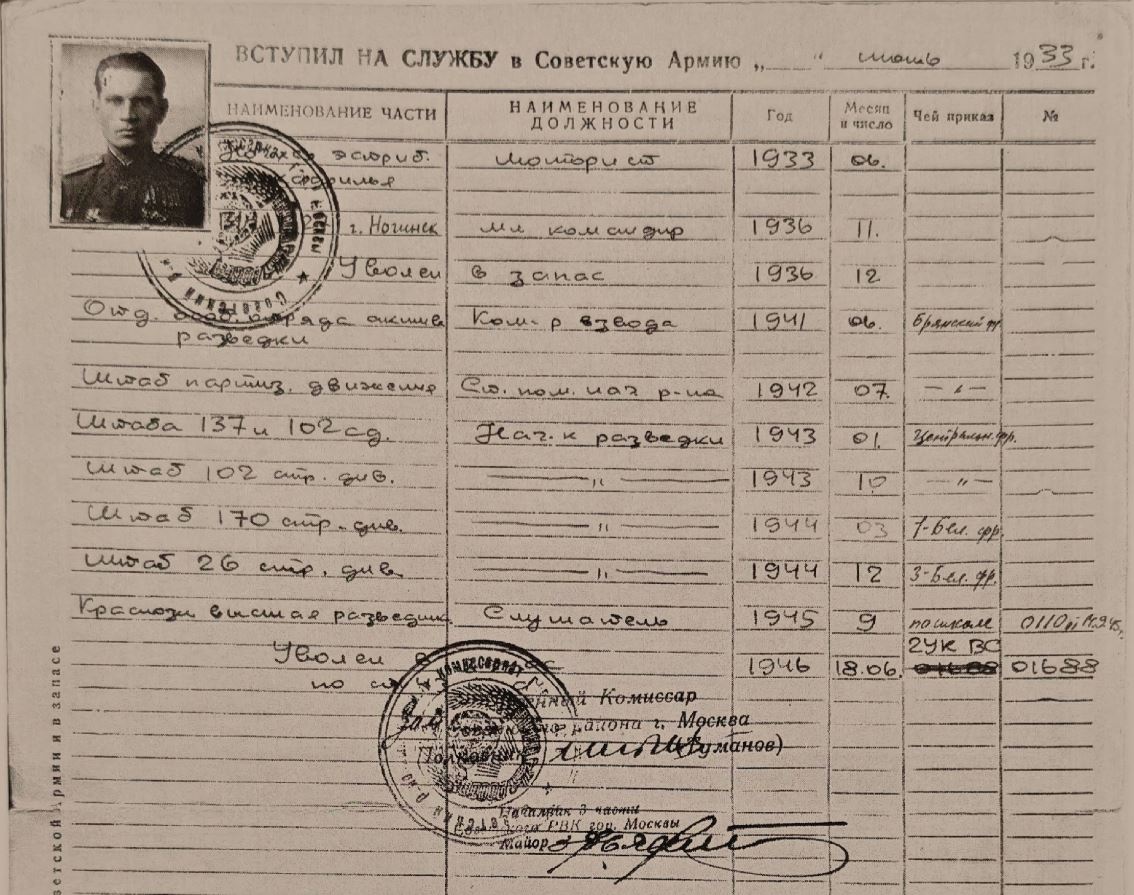 ВСТУПИЛ НА СЛУЖБУ в Советскую Армию „ “ июнь 1933 г.
НАИМЕНОВАНИЕ ЧАСТИ НАИМЕНОВАНИЕ ДОЛЖНОСТИ Год Месяц и число Чей приказ №
эскриб. Моторист 1933 06.
г. Ногинск мл командир 1936 11.
Уволен в запас 1936 12
Отд. отряда актив. Ком-р взвода 1941 06. Брянский фр.
разведки
Штаб партиз. движения Ст. пом. нач р-на 1942 07. — „ —
Штаба 137 и 102 сд. Нач-к разведки 1943 01. Центральн. фр.
Штаб 102 стр. див. — „ — 1943 10 — „ —
Штаб 170 стр. див. — „ — 1944 03 1-Бел. фр.
Штаб 26 стр. див. — „ — 1944 12 3-Бел. фр.
высшая разведшк. Слушатель 1945 9 по школе 0110
Уволен в 1946 18.06. ГУК ВС 01688
по
Комиссар
района г. Москва
(Полковник Туманов)
Начальник 3 части
РВК гор. Москвы
Майор
Армии и в запасе